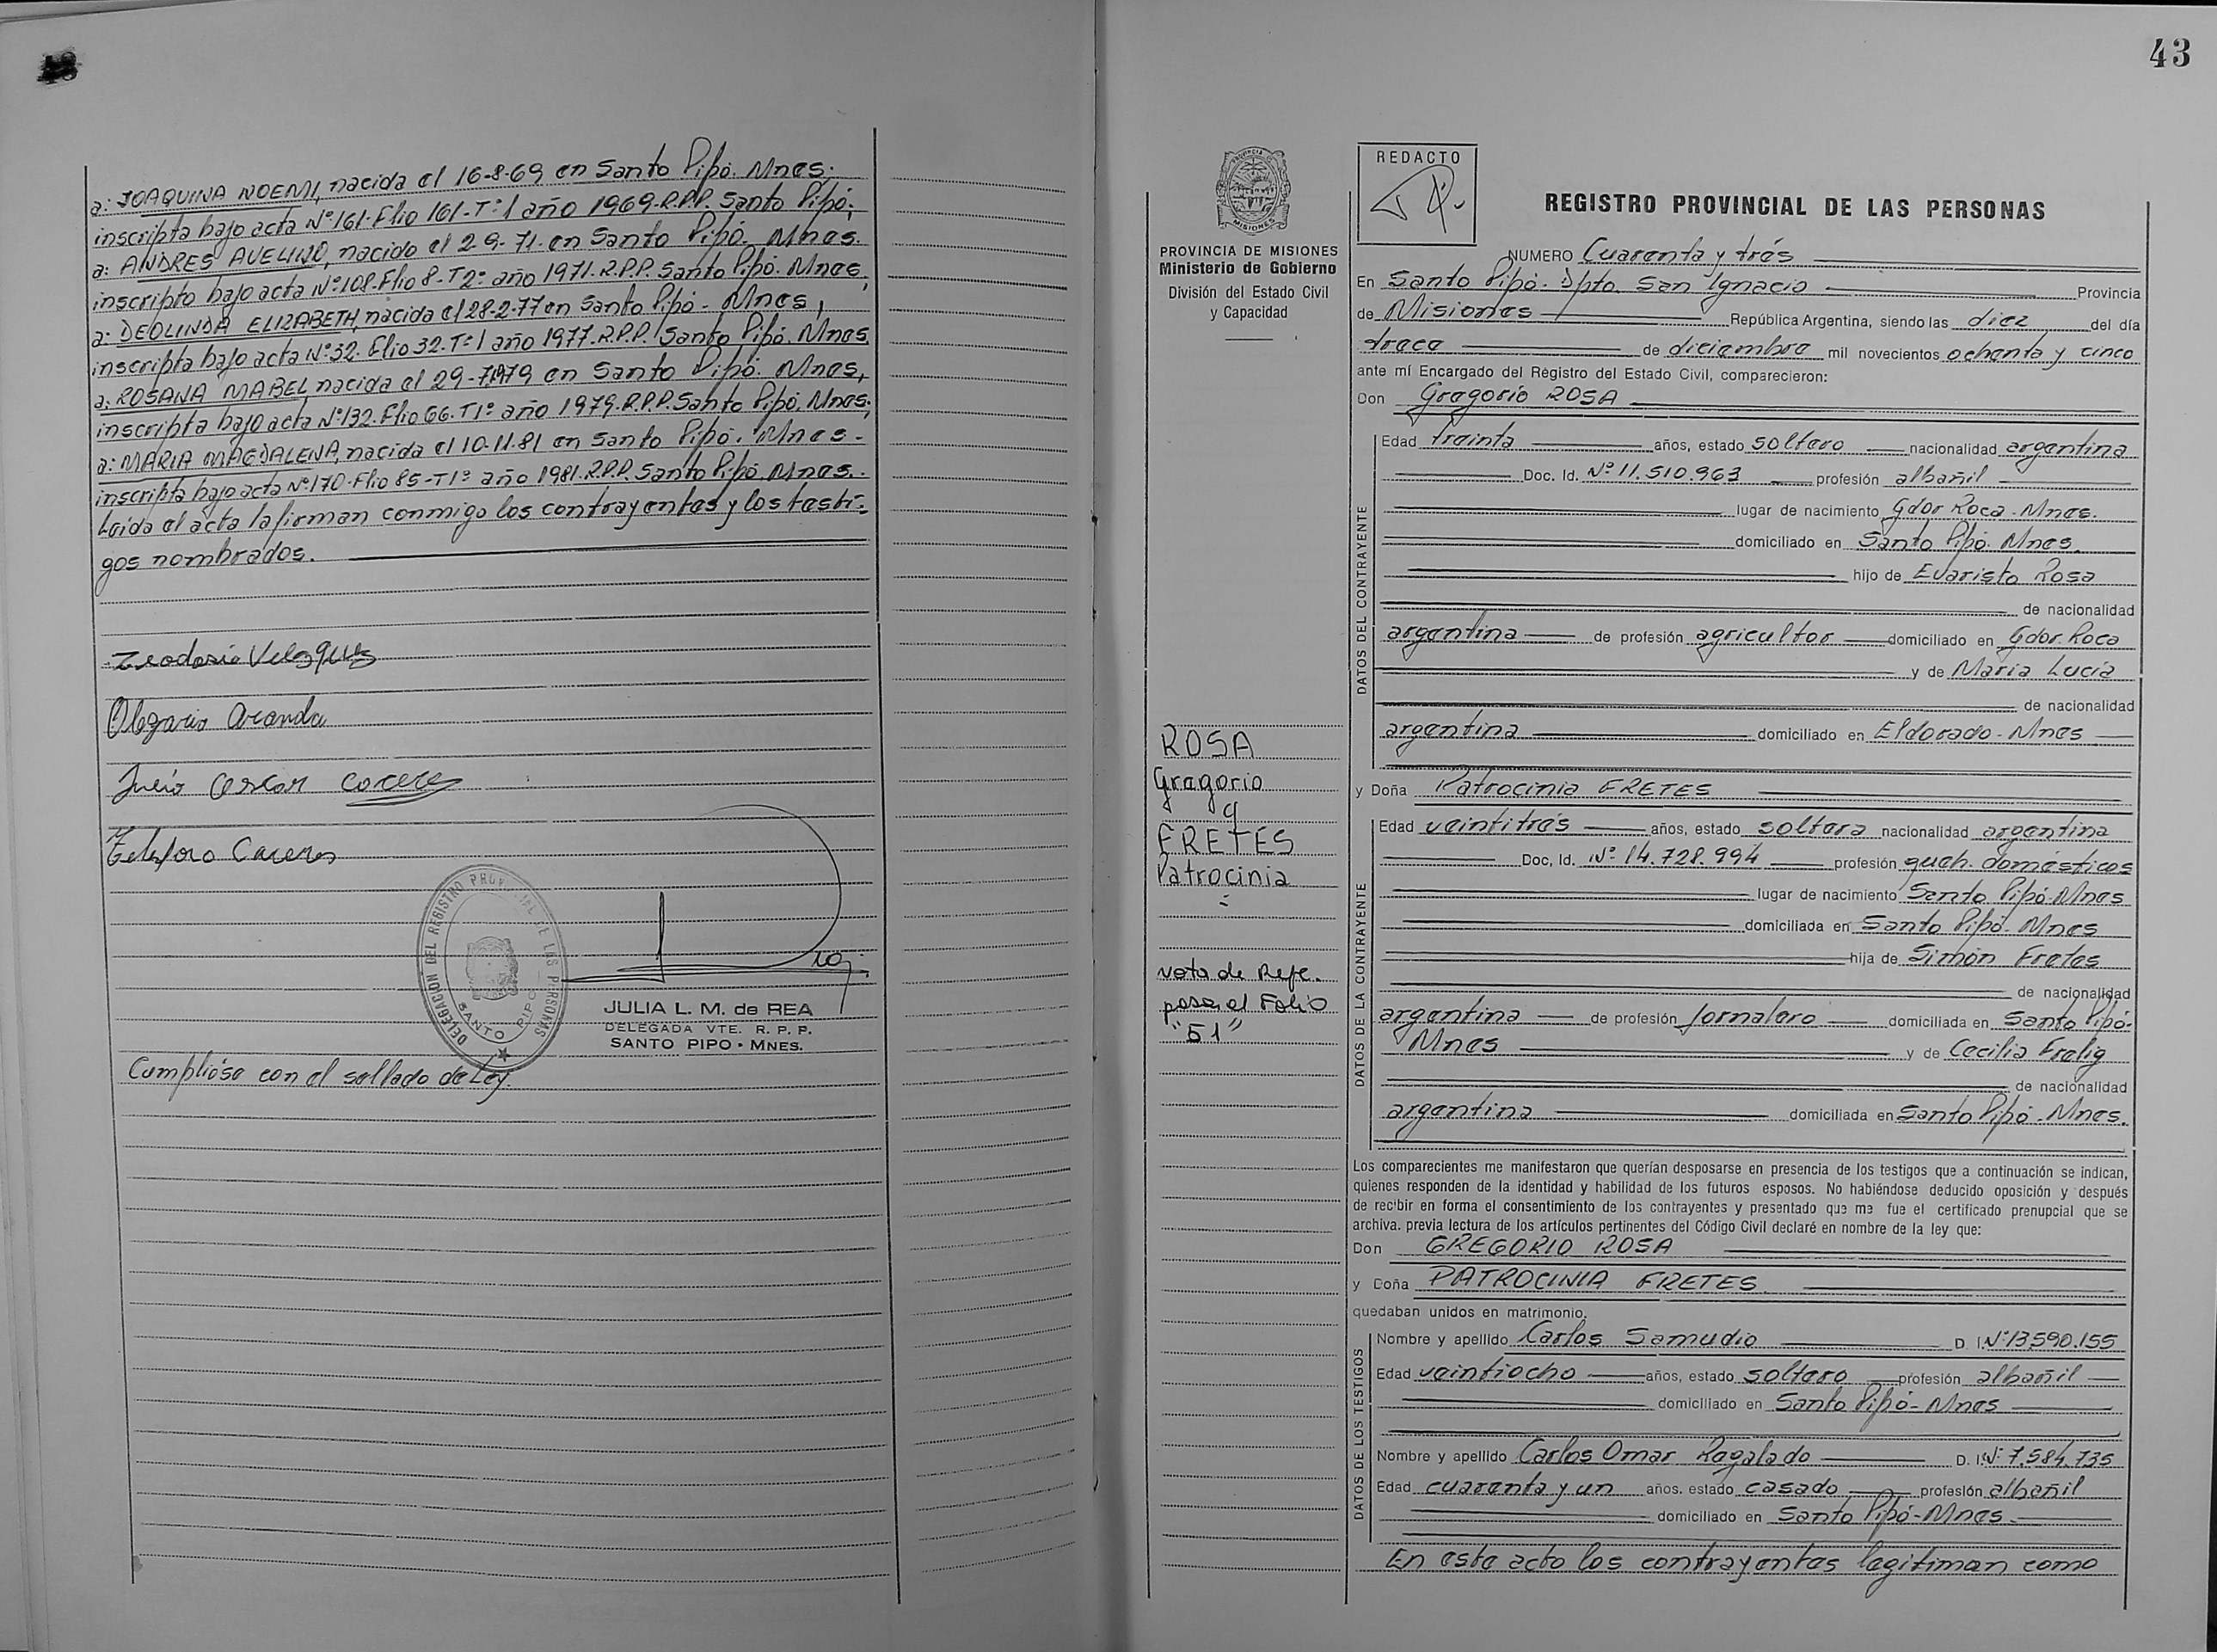 a: JOAQUINA NOEMI, nacida el 16-8-69 en Santo Pipó. Mnes;
inscripta bajo acta Nº161-Flio 161-Tº1 año 1969-R.P.P. Santo Pipó;
a: ANDRES AVELINO, nacido el 2-9-71-en Santo Pipó. Mnes.
inscripto bajo acta Nº108-Flio 8-T2º año 1971. R.P.P. Santo Pipó. Mnes,
a: DEOLINDA ELIZABETH, nacida el 28-2-77 en Santo Pipó - Mnes,
inscripta bajo acta Nº32. Flio 32. Tº1 año 1977. R.P.P. Santo Pipó. Mnes,
a: ROSANA MABEL, nacida el 29-7-1979 en Santo Pipó. Mnes,
inscripta bajo acta Nº132. Flio 66. T1º año 1979. R.P.P. Santo Pipó. Mnes;
a: MARIA MAGDALENA, nacida el 10-11-81 en Santo Pipó. Mnes-
inscripta bajo acta Nº170-Flio 85-T1º año 1981. R.P.P. Santo Pipó. Mnes.-
Leída el acta la firman conmigo los contrayentes y los testi-
gos nombrados.
Teodosio Velazquez
Olegario Aranda
Julio Oscar Caceres
Telesforo Caceres
DELEGACION DEL REGISTRO PROVINCIAL DE LAS PERSONAS
SANTO PIPO
JULIA L. M. de REA
DELEGADA VTE. R. P. P.
SANTO PIPO • MNES.
Cumplióse con el sellado de Ley.
43
PROVINCIA DE MISIONES
Ministerio de Gobierno
División del Estado Civil
y Capacidad
ROSA
Gregorio
y
FRETES
Patrocinia
Nota de Refe.
pasa al Folio
"51"
REDACTO
REGISTRO PROVINCIAL DE LAS PERSONAS
NUMERO Cuarenta y trés
En Santo Pipó. Dpto. San Ignacio Provincia
de Misiones República Argentina, siendo las diez del día
trece de diciembre mil novecientos ochenta y cinco
ante mí Encargado del Registro del Estado Civil, comparecieron:
Don Gregorio ROSA
DATOS DEL CONTRAYENTE
Edad treinta años, estado soltero nacionalidad argentina
Doc. Id. Nº 11.510.963 profesión albañil
lugar de nacimiento Gdor Roca-Mnes.
domiciliado en Santo Pipó. Mnes.
hijo de Evaristo Rosa
de nacionalidad
argentina de profesión agricultor domiciliado en Gdor. Roca
y de Maria Lucía
de nacionalidad
argentina domiciliado en Eldorado-Mnes
y Doña Patrocinia FRETES
DATOS DE LA CONTRAYENTE
Edad veintitrés años, estado soltera nacionalidad argentina
Doc, Id. Nº 14.728.994 profesión queh. domésticos
lugar de nacimiento Santo Pipó-Mnes
domiciliada en Santo Pipó-Mnes
hija de Simón Fretes
de nacionalidad
argentina de profesión jornalero domiciliada en Santo Pipó-
Mnes y de Cecilia Frelig
de nacionalidad
argentina domiciliada en Santo Pipó-Mnes.
Los comparecientes me manifestaron que querían desposarse en presencia de los testigos que a continuación se indican,
quienes responden de la identidad y habilidad de los futuros esposos. No habiéndose deducido oposición y después
de recibir en forma el consentimiento de los contrayentes y presentado que me fue el certificado prenupcial que se
archiva. previa lectura de los artículos pertinentes del Código Civil declaré en nombre de la ley que:
Don GREGORIO ROSA
y Doña PATROCINIA FRETES
quedaban unidos en matrimonio.
DATOS DE LOS TESTIGOS
Nombre y apellido Carlos Samudio D. I. Nº 13.590.155
Edad veintiocho años, estado soltero profesión albañil
domiciliado en Santo Pipó-Mnes
Nombre y apellido Carlos Omar Regalado D. I. Nº 7.584.735
Edad cuarenta y un años. estado casado profesión albañil
domiciliado en Santo Pipó-Mnes
En este acto los contrayentes legitiman como